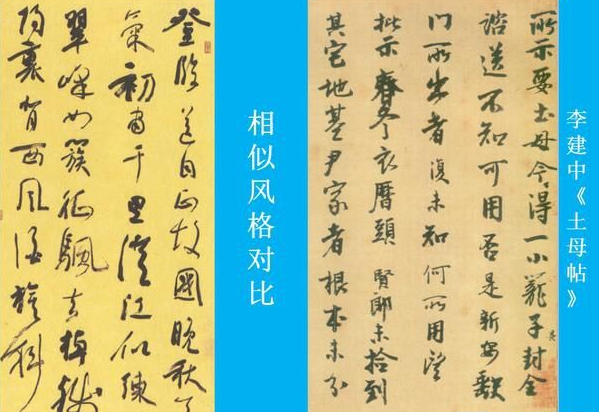 登临送目正故國晚秋天
氣初肃千里澄江似練
翠峰如簇征颿去棹残
阳裏背西风酒旗斜
相似风格对比
所示要土母今得一小籠子封全
諮送不知可用否是新安缺
门所出者復未知何所用望
批示春冬衣曆頭賢郎未拾到
其宅地基尹家者根本未分
李建中《土母帖》